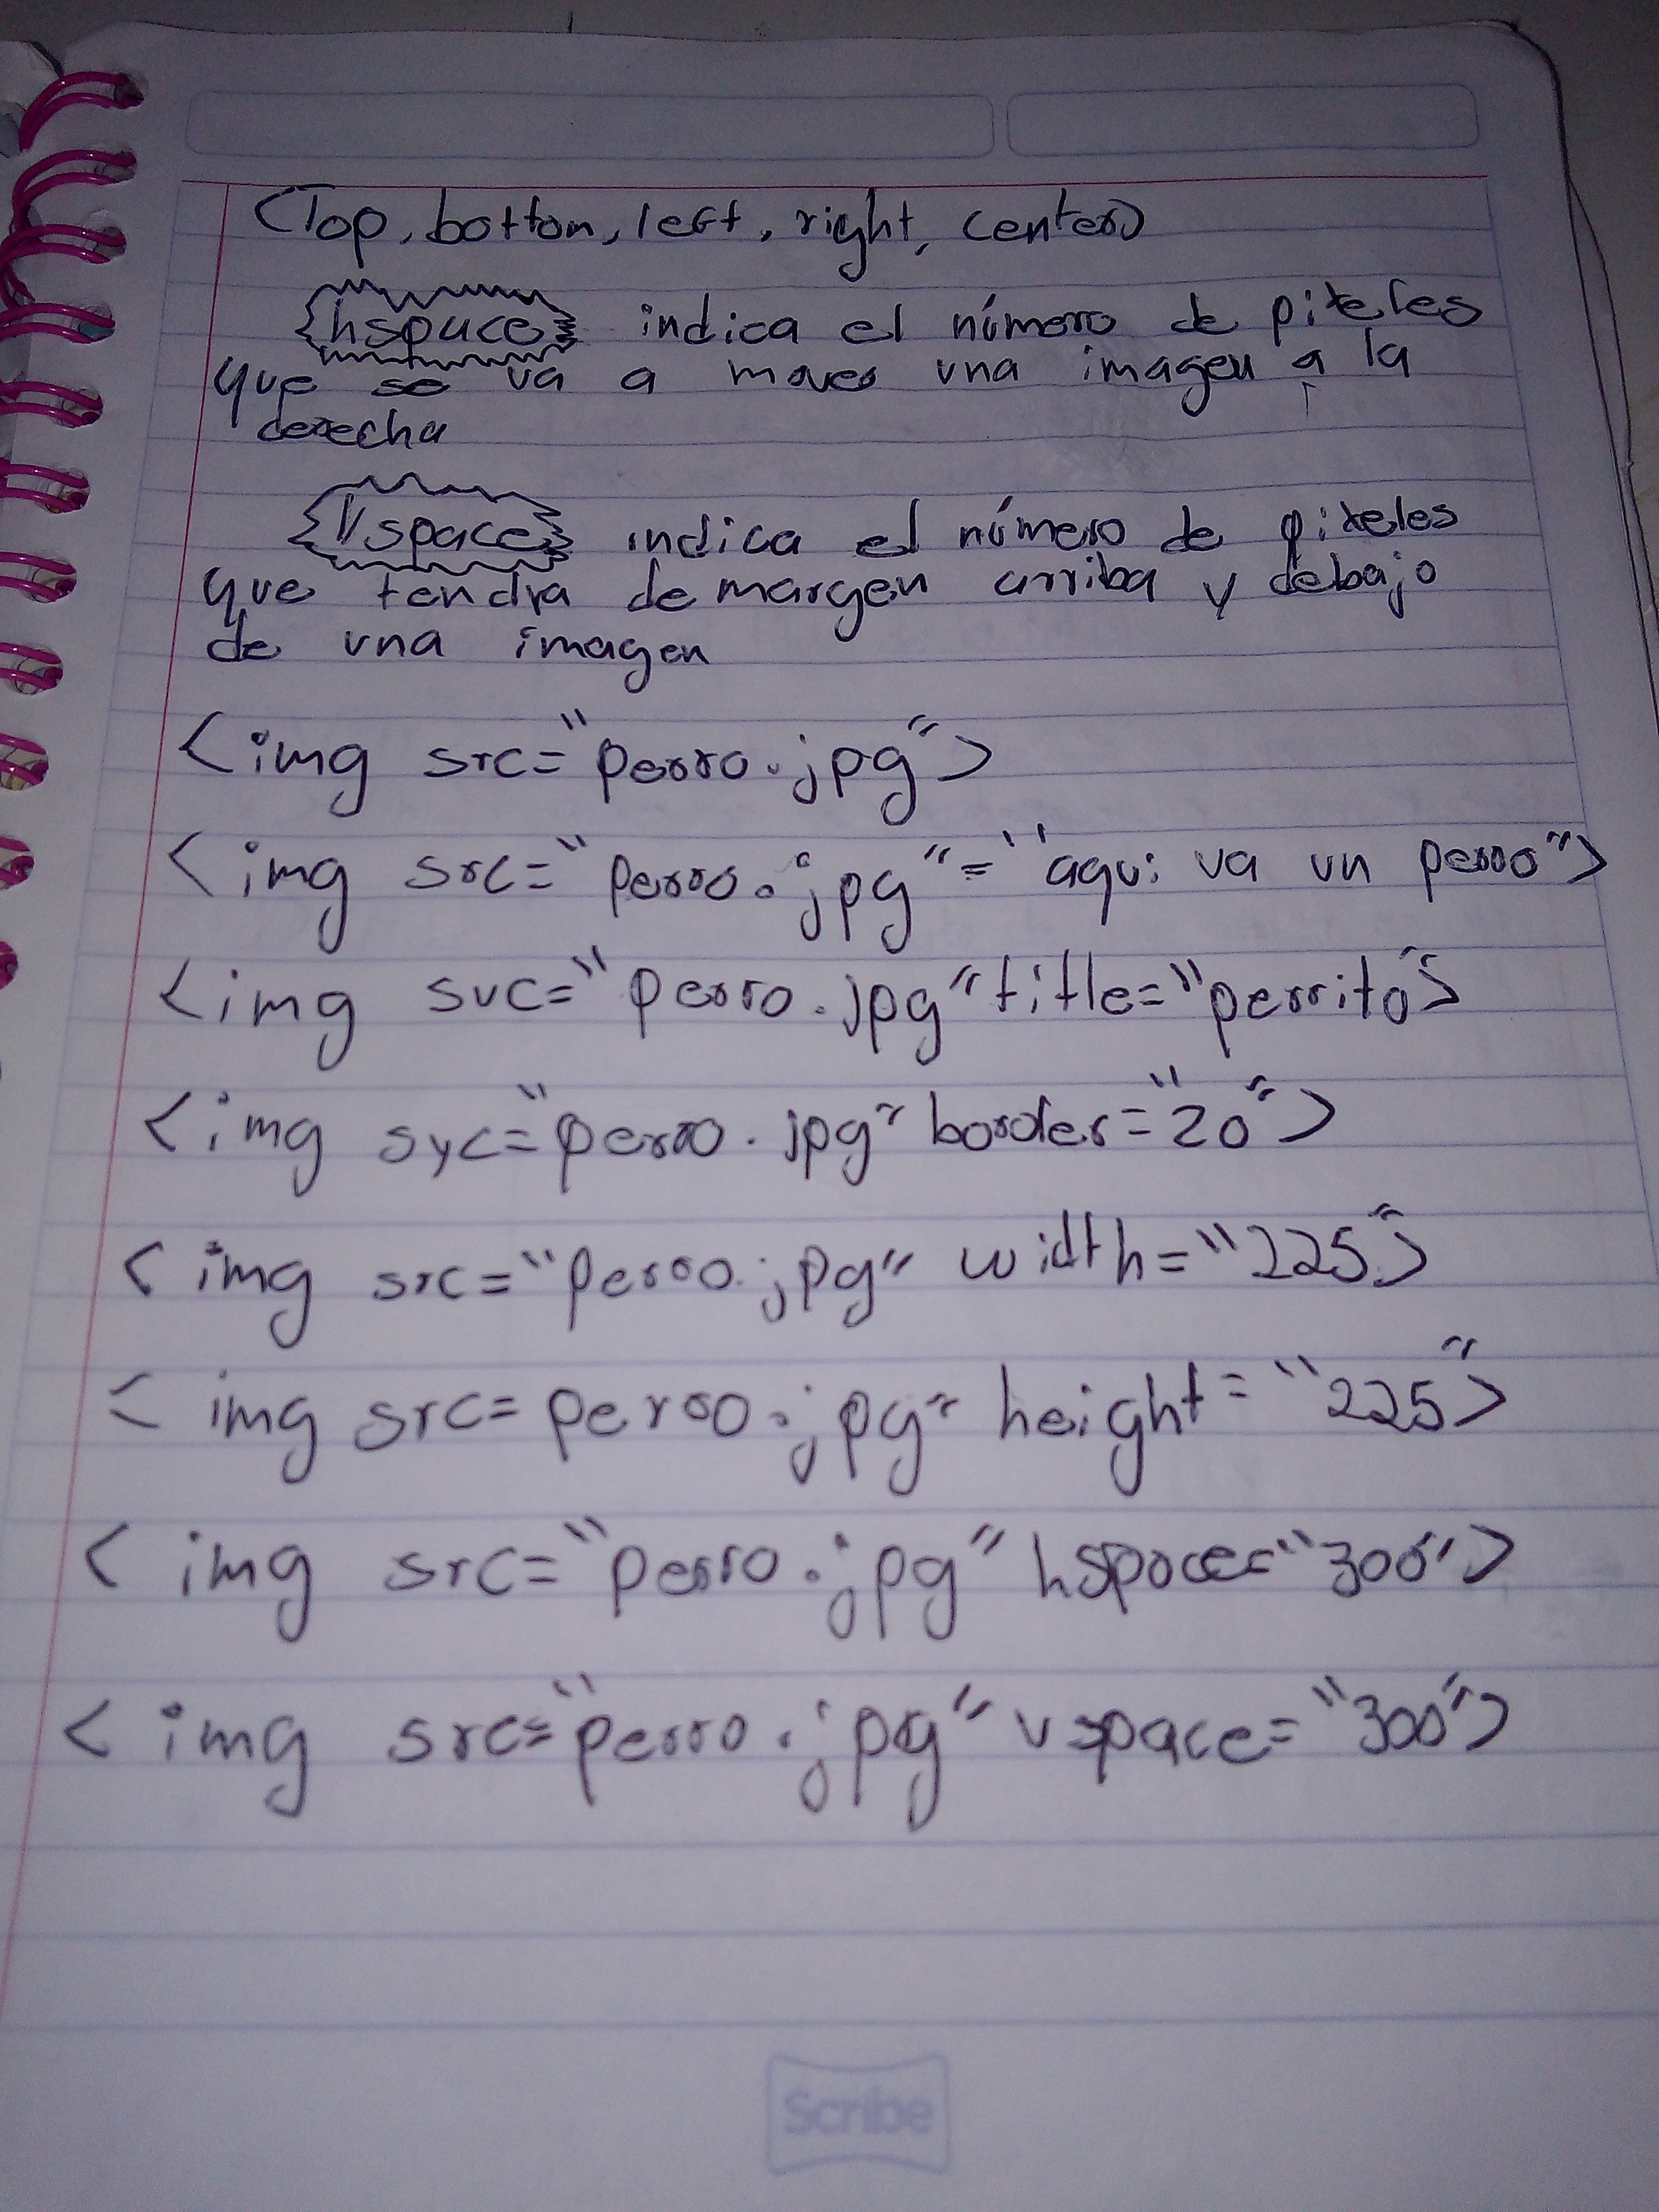 (Top, bottom, left, right, center)
hspace indica el número de píxeles
que se va a mover una imagen a la
derecha
Vspace indica el número de píxeles
que tendra de margen arriba y debajo
de una imagen
<img src="perro.jpg">
<img src="perro.jpg"="aqui va un perro">
<img src="perro.jpg" title="perrito">
<img src="perro.jpg" border="20">
<img src="perro.jpg" width="225">
<img src=perro.jpg" height="225">
<img src="perro.jpg" hspace="300">
<img src="perro.jpg" vspace="300">
Scribe